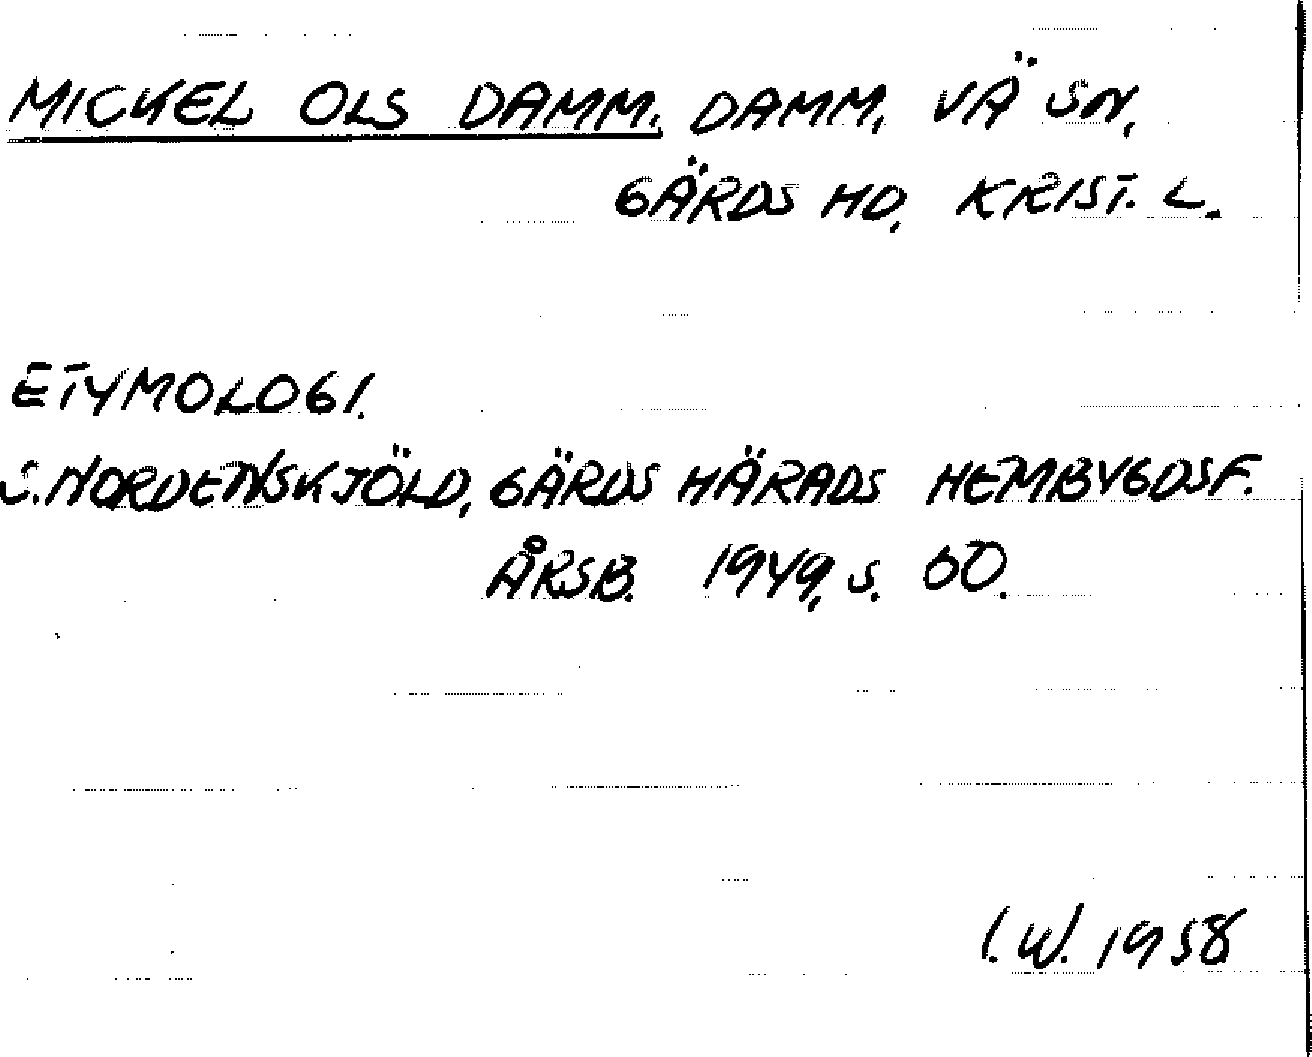 MICKEL OLS DAMM. DAMM, VÄ SN,
GÄRDS HD, KRIST. L.
ETYMOLOGI.
S. NORDENSKJÖLD, GÄRDS HÄRADS HEMBYGDSF.
ÅRSB. 1949, S. 60.
I. W. 1958